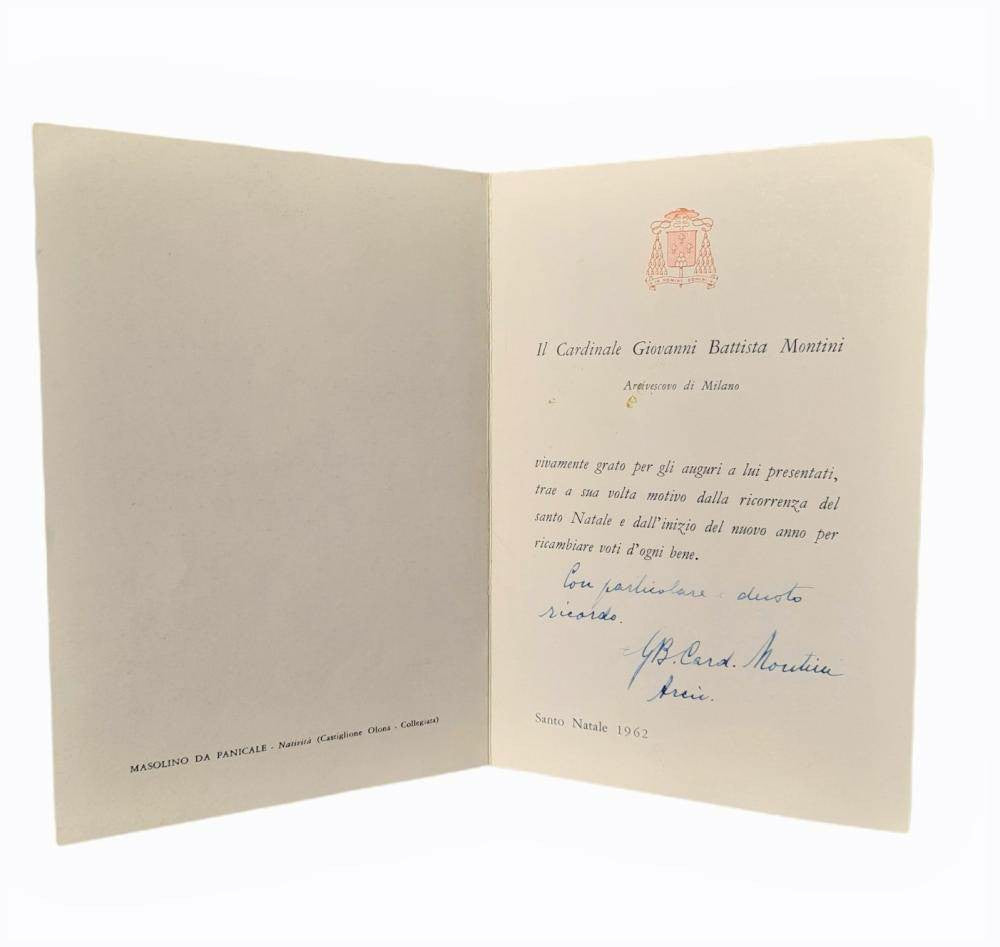 MASOLINO DA PANICALE - Natività (Castiglione Olona - Collegiata)
IN NOMINE DOMINI
Il Cardinale Giovanni Battista Montini
Arcivescovo di Milano
vivamente grato per gli auguri a lui presentati,
trae a sua volta motivo dalla ricorrenza del
santo Natale e dall'inizio del nuovo anno per
ricambiare voti d'ogni bene.
Con particolare e devoto
ricordo.
GB. Card. Montini
Arciv.
Santo Natale 1962